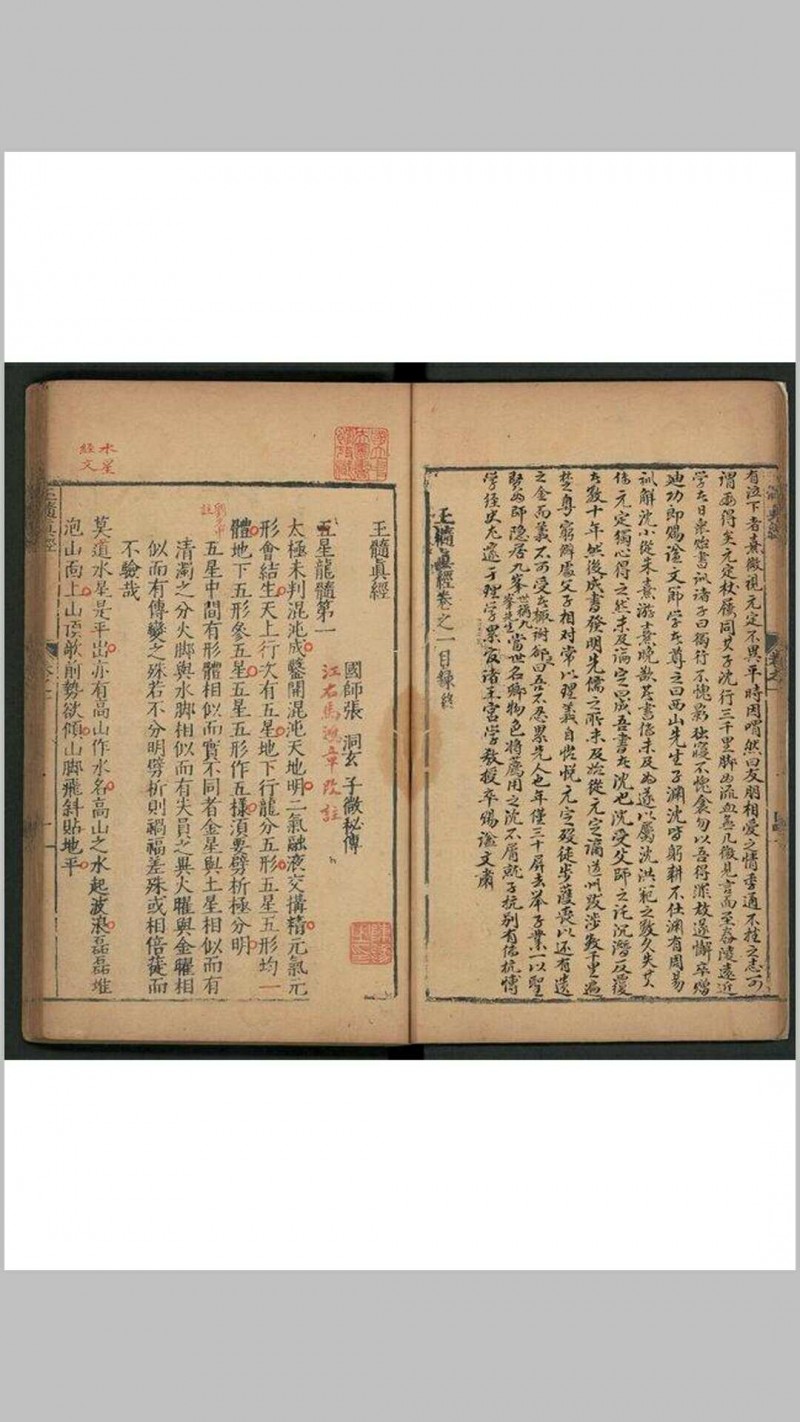 有泣下者熹微視元定不異平時因喟然曰友朋相愛之情季通不挫之志可
謂兩得矣元定杖屨同其子沈行三千里脚為流血無几微見言面至舂陵遠近
學者日衆貽書訓諸子曰獨行不愧影獨寝不愧衾勿以吾得罪故遂懈卒贈
迪功郎賜諡文節学者尊之曰西山先生子渊沈皆躬耕不仕渊有周易
訓解沈小從朱熹游熹晚歲著書傳未及為遂以屬沈洪範之數久失其
傳元定獨心得之然未及論定曰成吾書者沈也沈受父師之託沉潛反覆
者數十年然後成書發明先儒之所未及從元定謫道州跋涉數千里
楚粤窮僻處父子相對常以理義自悅元定殁徒步護喪以還有遺
之金而義不可受者輒謝郤曰吾不忍累先人也年僅三十屏去举子業一以聖
賢為師隐居九峯世稱九峯先生當世名卿物色將薦用之沈不屑就子抗别有傳杭博
学経史尤邃于理學累官諸王宮学教授卒赐諡文肅
玉髓真經卷之一目錄終
玉髓真經
國師張 洞玄 子微秘傳
江右馬 章 改註
五星龍髓第一
太極未判混沌成鑿開混沌天地明二氣融液交搆精元氣元
形會結生天上行次有五星地下行龍分五形五星五形均一
體地下五形參五星五星五形作五樣須要劈析極分明
註
五星中間有形體相似而實不同者金星與土星相似而有
清濁之分火脚與水脚相似而有尖員之異火曜與金曜相
似而有傳變之殊若不分明劈析則禍福差殊或相倍蓰而
不驗哉
水星
経文
莫道水星是平出亦有高山作水名高山之水起波浪磊磊堆
泡山靣上山頂欹削勢欲傾山脚飛斜貼地平
玉髓真經